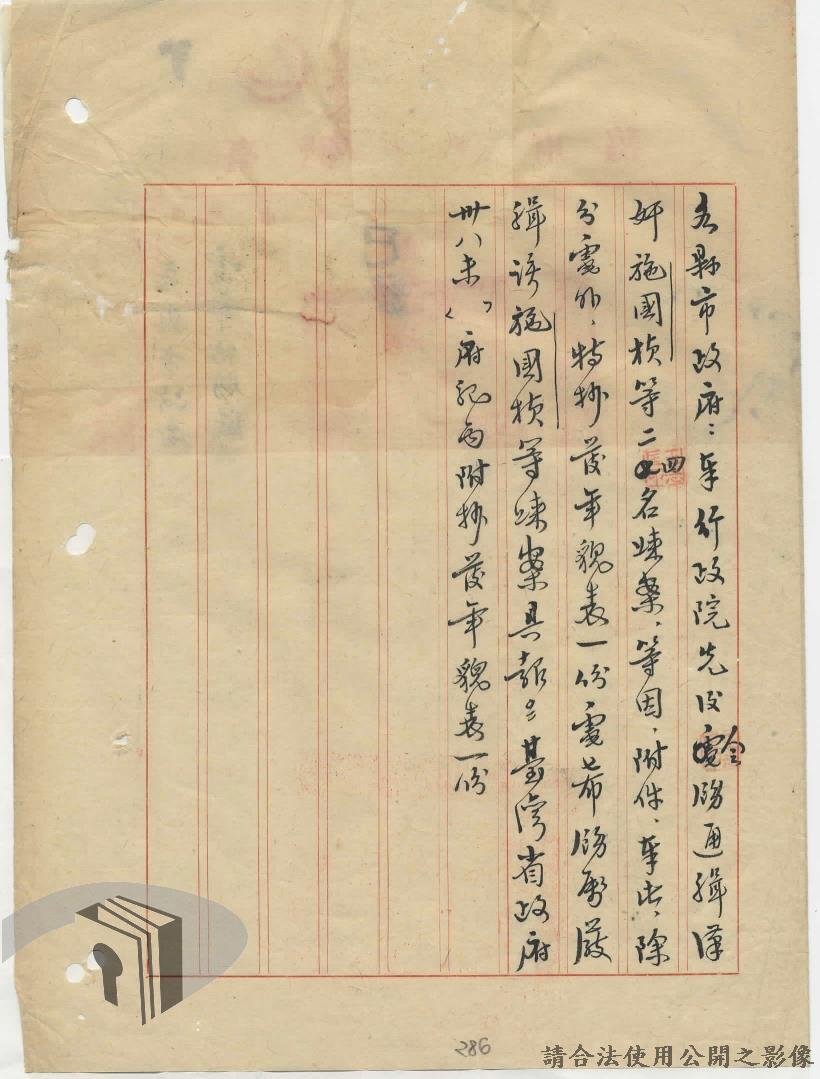 各縣市政府：奉行政院先後令飭通緝漢
奸施國楨等二四名歸案，等因，附件，奉此，除
分電外，特抄發年貌表一份電希飭屬嚴
緝該施國楨等歸案具報。臺灣省政府
卅八未（ ）府 丙附抄發年貌表一份
286
請合法使用公開之影像